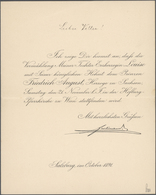 Lieber Vetter!
Ich zeige Dir hiemit an, dass die
Vermählung Meiner Tochter Erzherzogin Louise
mit Seiner königlichen Hoheit dem Prinzen
Friedrich August, Herzog zu Sachsen,
Samstag den 21. November l. J. in der Hofburg-
Pfarrkirche in Wien stattfinden wird.
Mit herzlichsten Grüßen
Salzburg, im October 1891.